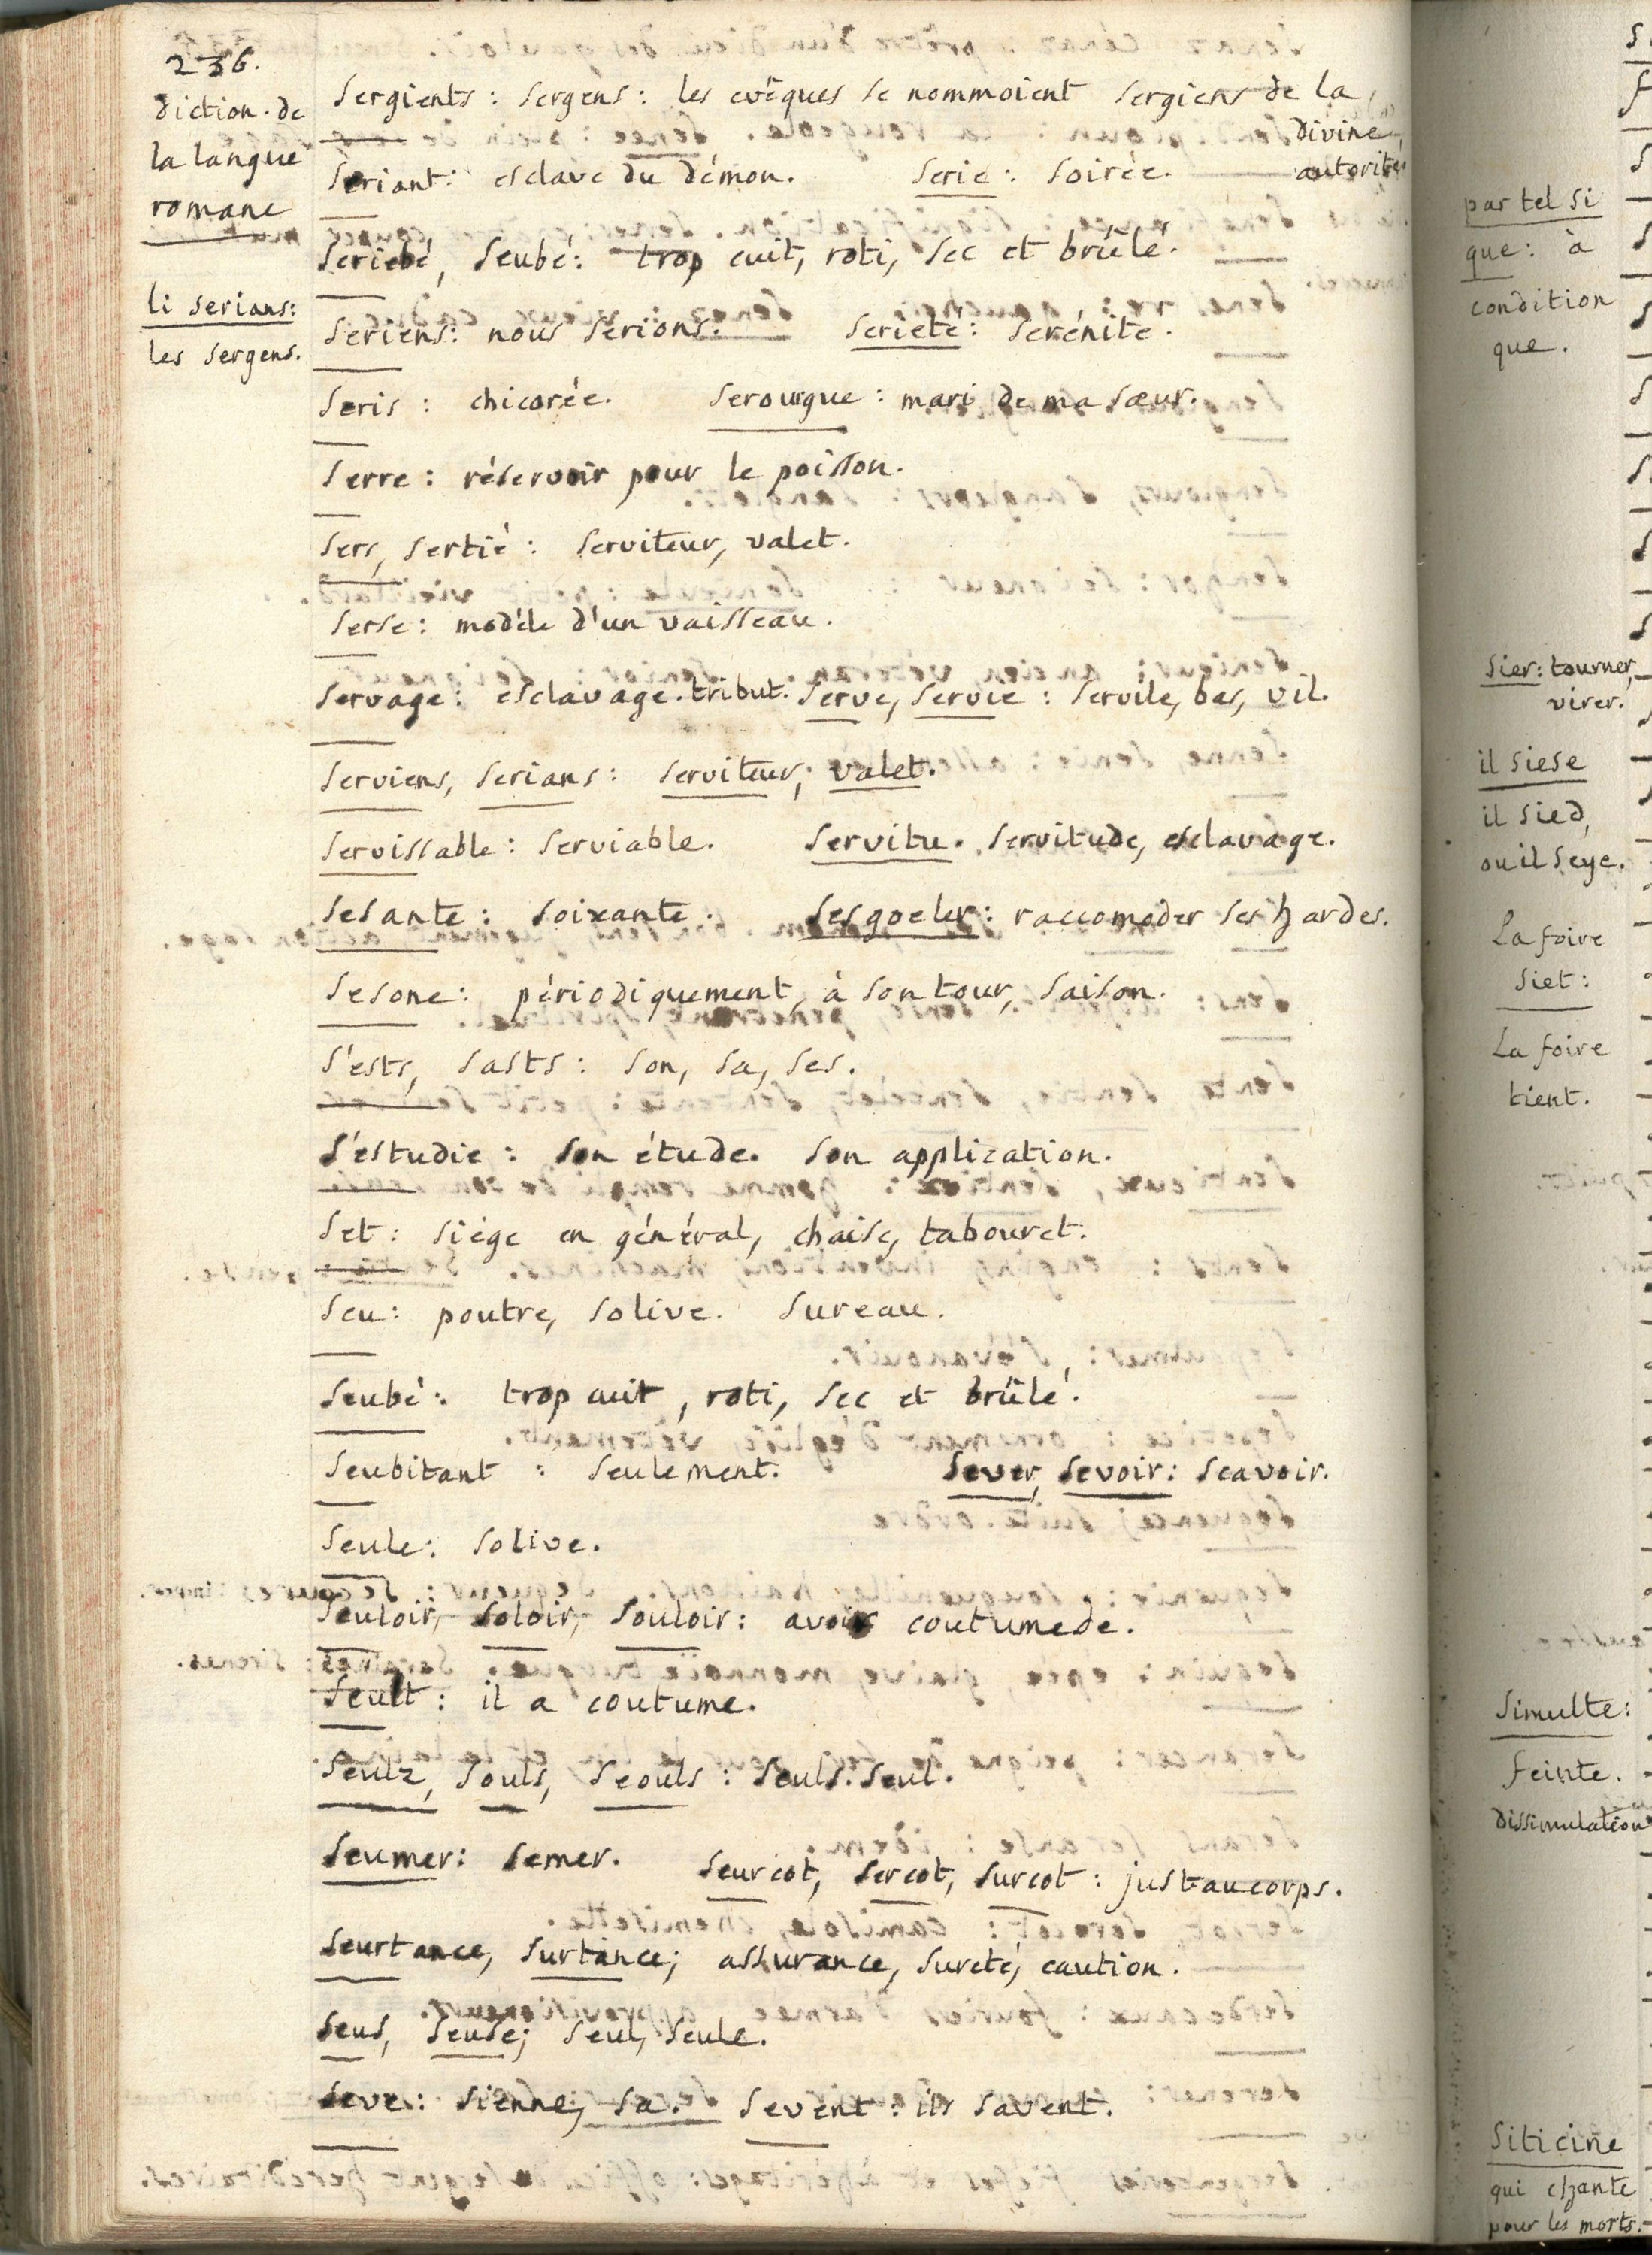 236.
diction. de
la langue
romane
li serians:
les sergens.
Sergients: sergens: les evêques se nommoient sergiens de la
divine
autorité
Seriant: esclave du démon. Serie: soirée.
Seriebé, Seubé: trop cuit, roti, sec et brûlé.
Seriens: nous serions. Serieté: Serénité.
Seris: chicorée. Serourgue: mari de ma sœur.
Serre: réservoir pour le poisson.
Sers, sertié: serviteur, valet.
Serse: modèle d'un vaisseau.
Servage: esclavage. tribut. Serve, servie: servile, bas, vil.
Serviens, serians: serviteur, valet.
Servissable: serviable. Servitu. servitude, esclavage.
Sesante: soixante. Sesgoeler: raccomoder ses hardes.
Sesone: périodiquement, à son tour, saison.
S'ests, sasts: son, sa, ses.
S'estudie: son étude. son application.
Set: siége en général, chaise, tabouret.
Seu: poutre, solive. Sureau.
Seubé: trop cuit, roti, sec et brûlé.
Seubitant: seulement. Sever, sevoir: scavoir.
Seule: solive.
Seuloir, soloir, souloir: avoir coutume de.
Seult: il a coutume.
Seulz, souls, seouls: seuls. seul.
Seumer: semer. Seurcot, sercot, surcot: justaucorps.
Seurtance, surtance; assurance, sureté, caution.
Seus, seuse; seul, seule.
Seve: sienne, sa. Sevent: ils savent.
par tel si
que: à
condition
que.
Sier: tourner,
virer.
il siese
il sied,
ou il seye.
La foire
siet:
La foire
tient.
Simulte:
feinte.
dissimulation
Siticine
qui chante
pour les morts.